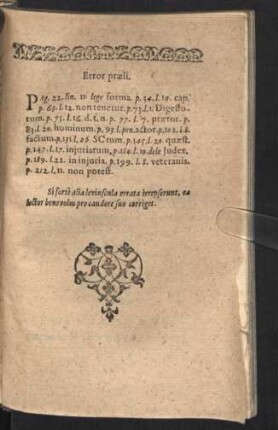 Error præli.
Pag. 22. lin. 11 lege forma p. 34. l. 19. cap.
p. 69. l. 12. non tenetur. p. 73. l. 1. Digesto-
rum. p. 75. l. 16. d. t. n. p. 77. l. 7. prætor. p.
83. l. 20. hominum. p. 93. l. pen. actor. p. 102. l. 8.
factum. p. 131. l. 26. SCtum. p. 145. l. 20. quæst.
p. 147. l. 17. injuriarum. p. 164. l. 10. dele Judex.
p. 189. l. 22. in injuria. p. 199. l. 8. veteranis.
p. 212. l. 11. non potest.
Si fortè alia leviuscula errata irrepserunt, ea
lector benevolus pro candore suo corriget.